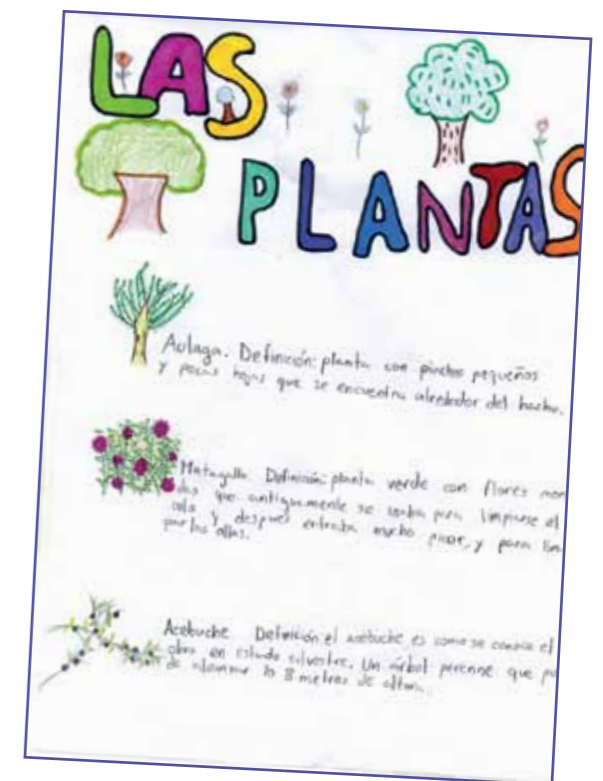 LAS
PLANTAS
Aulaga. Definición: planta con pinchos pequeños
y pocas hojas que se encuentra alrededor del hacho.
Matagallo Definición: planta verde con flores mor
das que antiguamente se usaba para limpiarse el
culo y después entraba mucho picor, y para lim
piar las ollas.
Acebuche Definición el acebuche es como se conoce el
olivo en estado silvestre. Un árbol perenne que pu
de alcanzar lo 8 metros de altura.